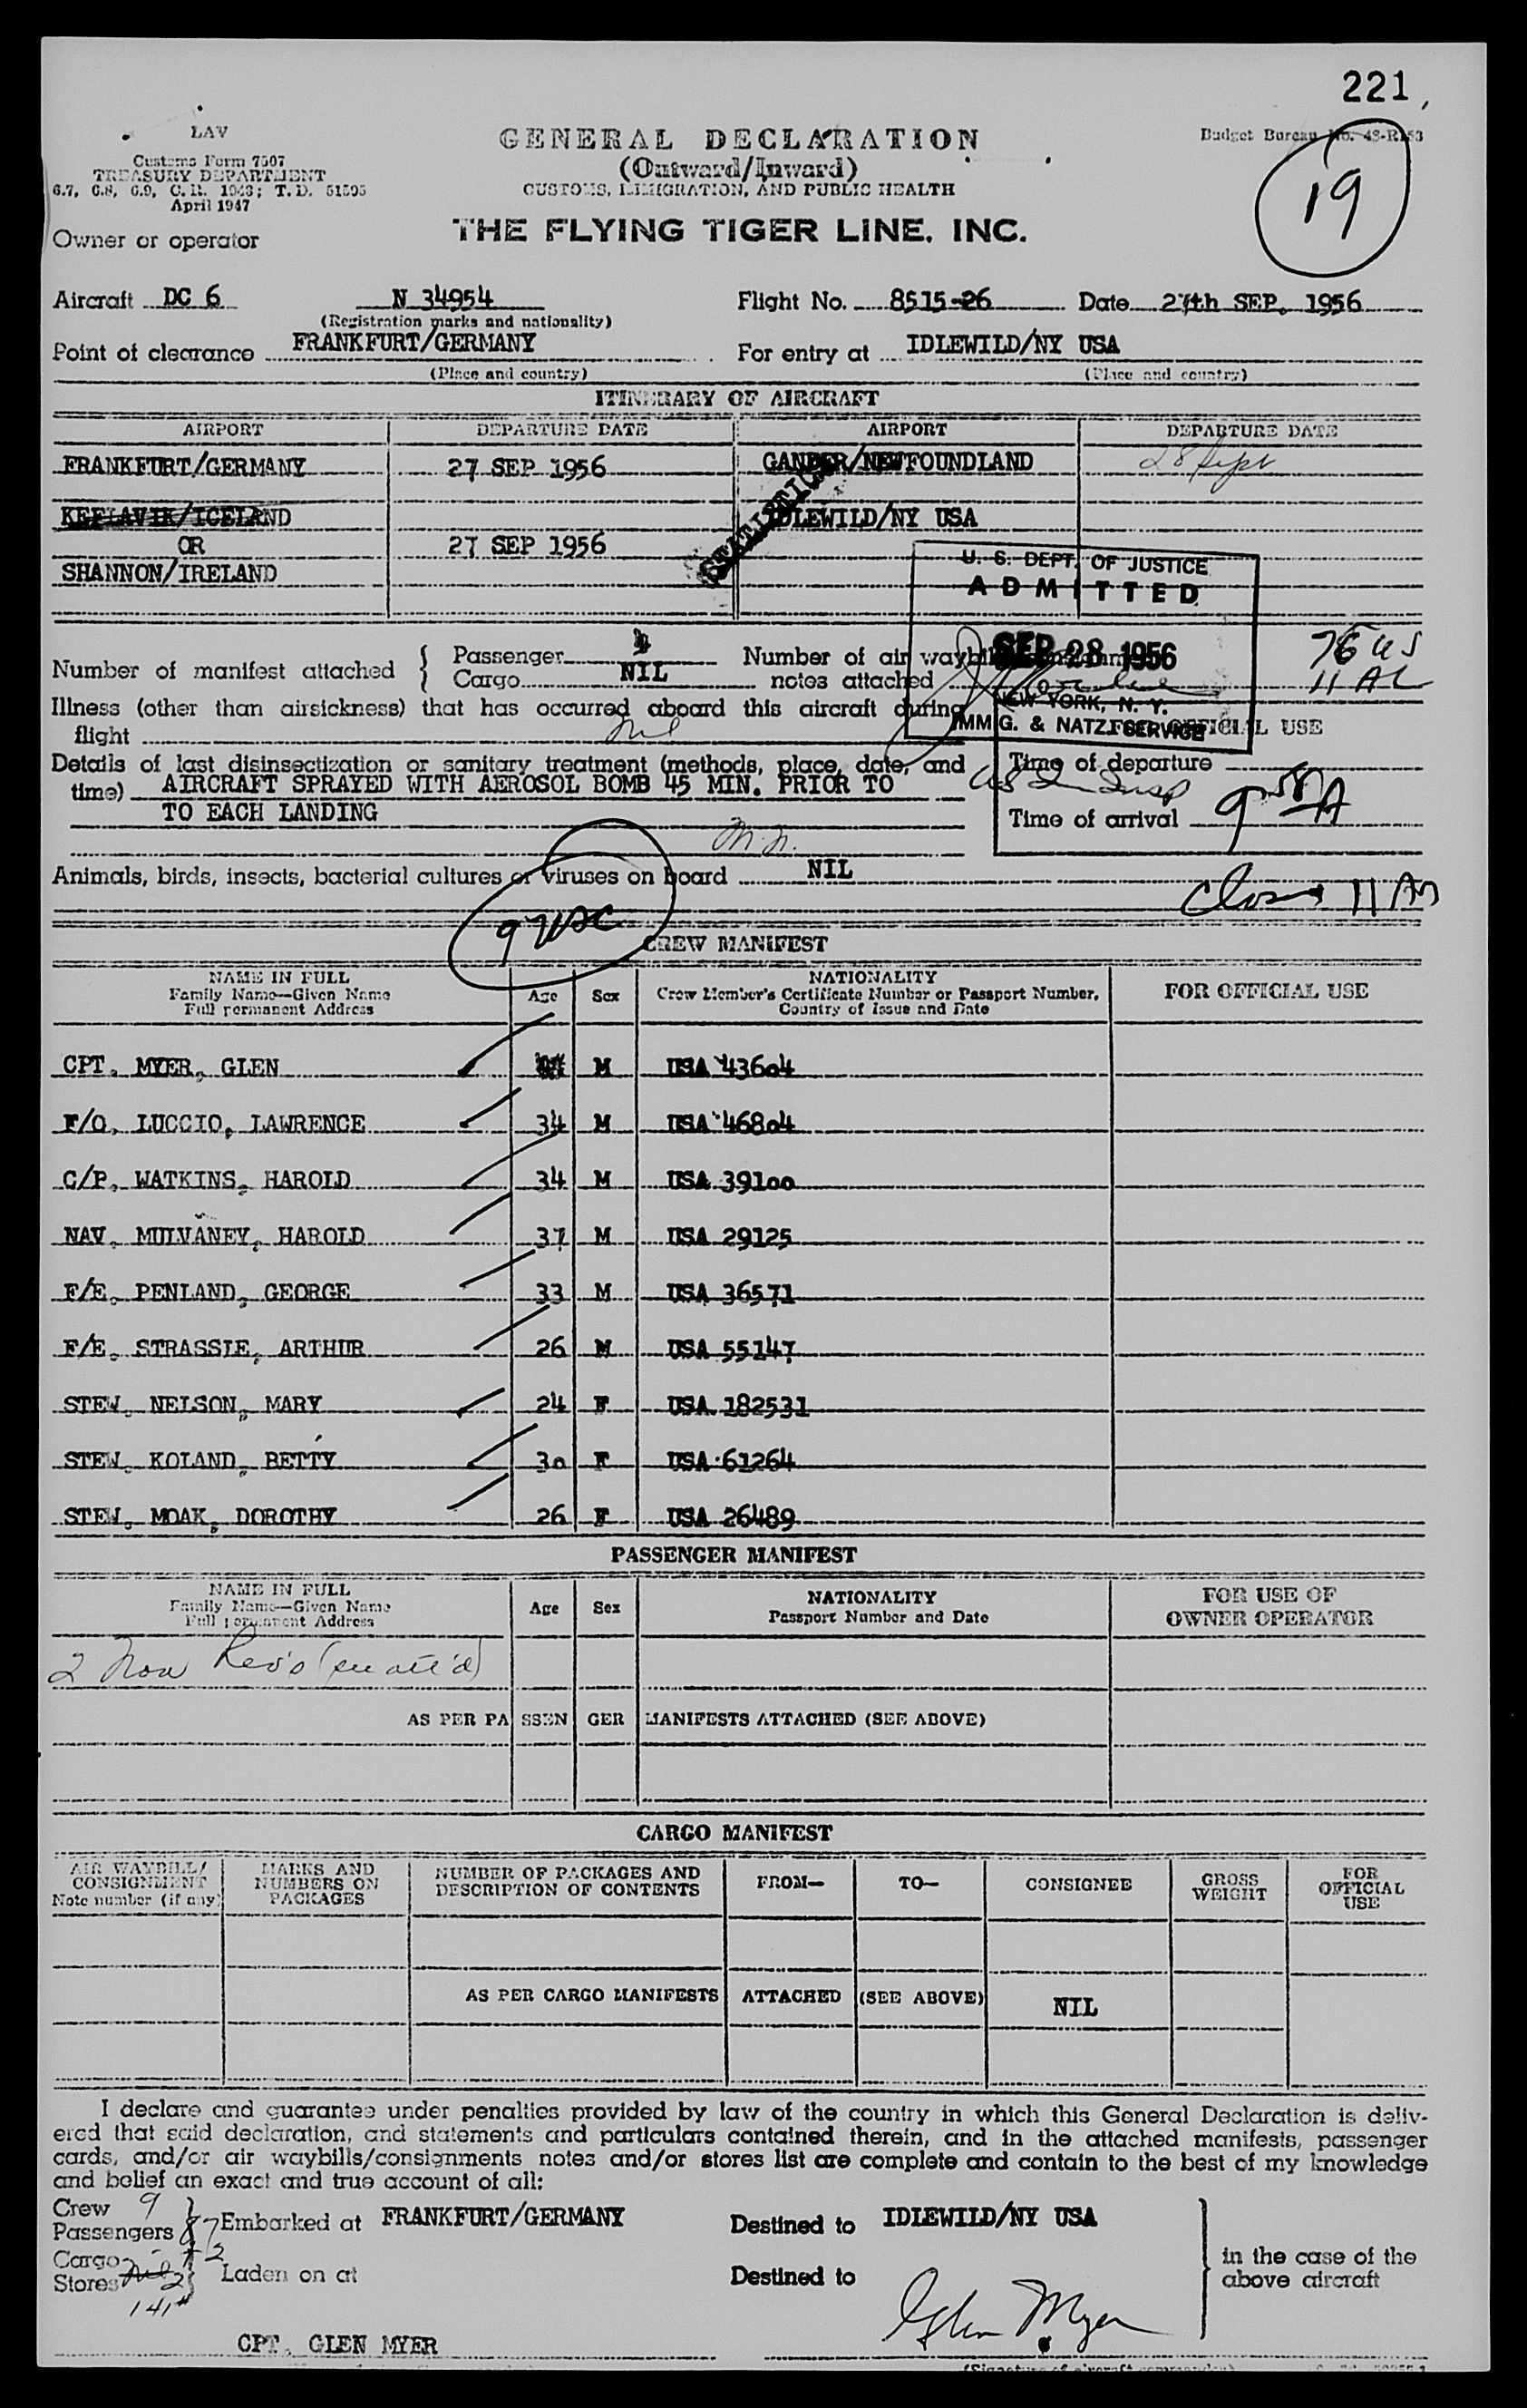 221
LAV
Customs Form 7507
TREASURY DEPARTMENT
6.7, 6.8, 6.9, C.R. 1943; T.D. 51595
April 1947
GENERAL DECLARATION
(Outward/Inward)
CUSTOMS, IMMIGRATION, AND PUBLIC HEALTH
Budget Bureau No. 48-R153
19
Owner or operator
THE FLYING TIGER LINE, INC.
Aircraft DC 6 N 34954 Flight No. 8515-26 Date 27th SEP. 1956
(Registration marks and nationality)
Point of clearance FRANKFURT/GERMANY For entry at IDLEWILD/NY USA
(Place and country) (Place and country)
ITINERARY OF AIRCRAFT
AIRPORT DEPARTURE DATE AIRPORT DEPARTURE DATE
FRANKFURT/GERMANY 27 SEP 1956 GANDER/NEWFOUNDLAND 28 Sept
KEFLAVIK/ICELAND IDLEWILD/NY USA
OR 27 SEP 1956
SHANNON/IRELAND
STATISTICS
U. S. DEPT. OF JUSTICE
ADMITTED
SEP 28 1956
NEW YORK, N. Y.
IMMIG. & NATZ. SERVICE
Number of manifest attached Passenger Number of air waybills
Cargo NIL notes attached
76 US
11 AL
Illness (other than airsickness) that has occurred aboard this aircraft during
flight Nil
FOR OFFICIAL USE
Details of last disinsectization or sanitary treatment (methods, place, date, and
time) AIRCRAFT SPRAYED WITH AEROSOL BOMB 45 MIN. PRIOR TO
TO EACH LANDING
Time of departure
US Im Insp
Time of arrival 9 58 A
M.N.
Animals, birds, insects, bacterial cultures or viruses on board NIL
Closed 11 AM
9 USC
CREW MANIFEST
NAME IN FULL
Family Name—Given Name
Full permanent Address
Age Sex
NATIONALITY
Crew Member's Certificate Number or Passport Number,
Country of Issue and Date
FOR OFFICIAL USE
CPT. MYER, GLEN M USA 43604
F/O. LUCCIO, LAWRENCE 34 M USA 46804
C/P. WATKINS, HAROLD 34 M USA 39100
NAV. MULVANEY, HAROLD 37 M USA 29125
F/E. PENLAND, GEORGE 33 M USA 36571
F/E. STRASSIE, ARTHUR 26 M USA 55147
STEW. NELSON, MARY 24 F USA 182531
STEW. KOLAND, BETTY 30 F USA 61264
STEW. MOAK, DOROTHY 26 F USA 26489
PASSENGER MANIFEST
NAME IN FULL
Family Name—Given Name
Full permanent Address
Age Sex
NATIONALITY
Passport Number and Date
FOR USE OF
OWNER OPERATOR
2 Non Rev's (see att'd)
AS PER PASSENGER MANIFESTS ATTACHED (SEE ABOVE)
CARGO MANIFEST
AIR WAYBILL/
CONSIGNMENT
Note number (if any)
MARKS AND
NUMBERS ON
PACKAGES
NUMBER OF PACKAGES AND
DESCRIPTION OF CONTENTS
FROM— TO— CONSIGNEE
GROSS
WEIGHT
FOR
OFFICIAL
USE
AS PER CARGO MANIFESTS ATTACHED (SEE ABOVE) NIL
I declare and guarantee under penalties provided by law of the country in which this General Declaration is deliv-
ered that said declaration, and statements and particulars contained therein, and in the attached manifests, passenger
cards, and/or air waybills/consignments notes and/or stores list are complete and contain to the best of my knowledge
and belief an exact and true account of all:
Crew 9
Passengers 87 Embarked at FRANKFURT/GERMANY Destined to IDLEWILD/NY USA
+2
Cargo
Stores Nil 2 Laden on at Destined to
in the case of the
above aircraft
141#
Glen Myer
CPT. GLEN MYER
(Signature of aircraft commander)